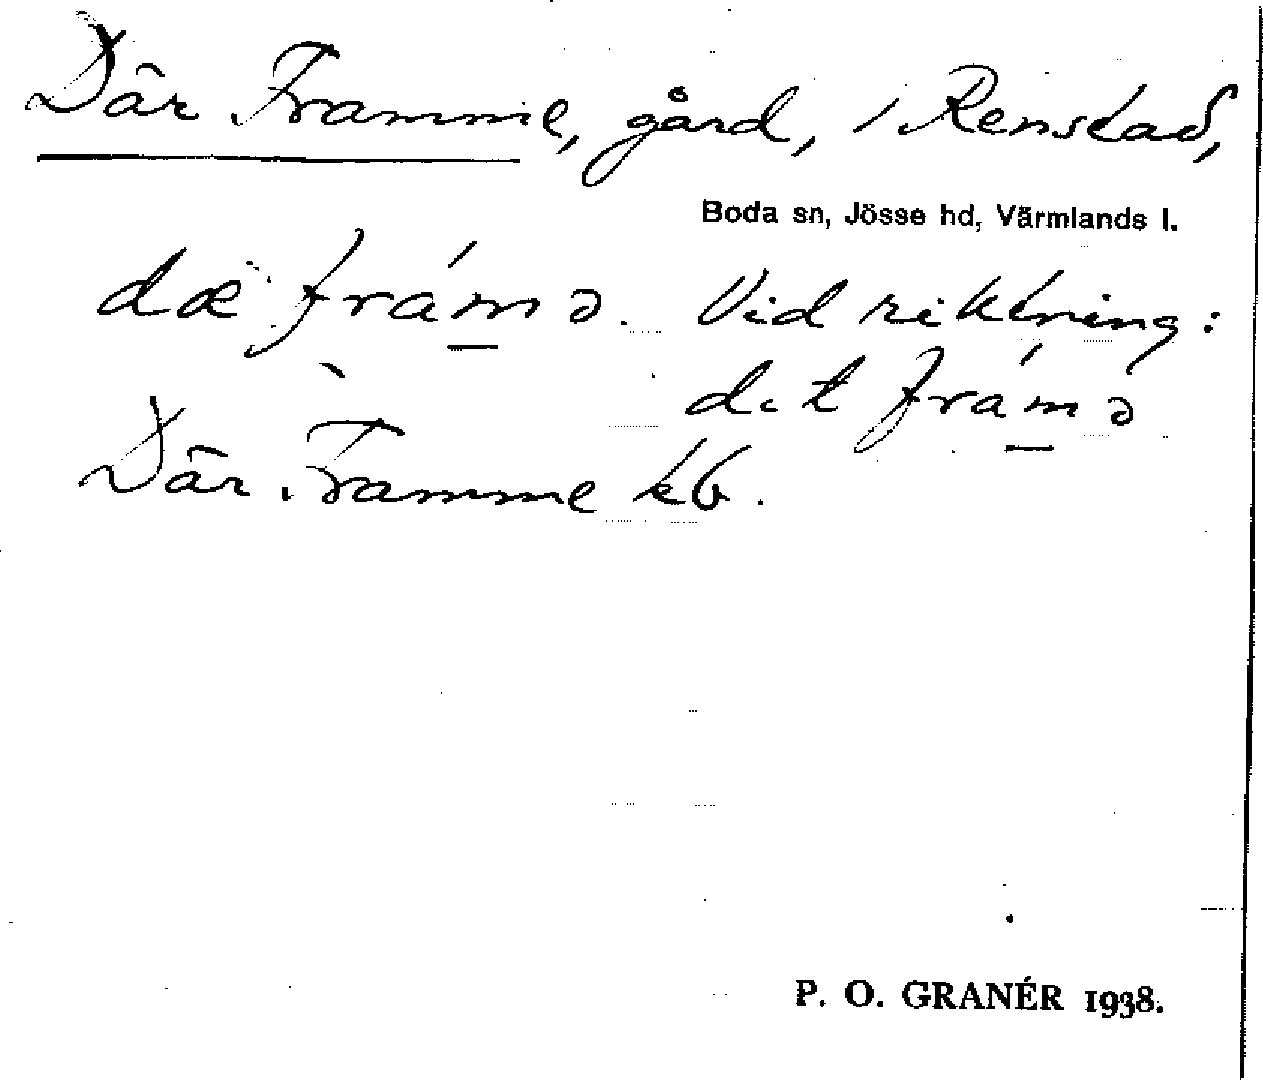 Där Framme, gård, i Renstad,
Boda sn, Jösse hd, Värmlands l.
dæ frámə. Vid riktning:
dit frámə
Där Framme kb.
P. O. GRANÉR 1938.